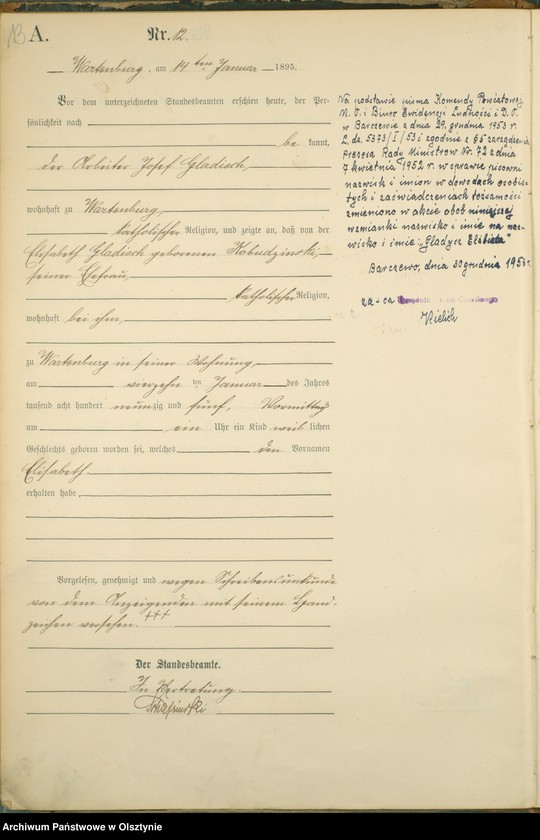 13 A.
Nr. 12.
Wartenburg, am 14 ten Januar 1895.
Vor dem unterzeichneten Standesbeamten erschien heute, der Per-
sönlichkeit nach
be kannt,
der Arbeiter Josef Gladisch,
wohnhaft zu Wartenburg,
katholischer Religion, und zeigte an, daß von der
Elisabeth Gladisch geborenen Kobudzinski,
seiner Ehefrau,
katholischer Religion,
wohnhaft bei ihm,
zu Wartenburg in seiner Wohnung,
am vierzehn ten Januar des Jahres
tausend acht hundert neunzig und fünf, Vormittags
um ein Uhr ein Kind weib lichen
Geschlechts geboren worden sei, welches den Vornamen
Elisabeth
erhalten habe
Vorgelesen, genehmigt und wegen Schreibensunkunde
von dem Anzeigenden mit seinem Hand-
zeichen versehen. +++
Der Standesbeamte.
In Vertretung
Na podstawie pisma Komendy Powiatowej
M. O. i Biuro Ewidencji Ludności i D. O.
w Barczewie z dnia 29. grudnia 1953 r.
L. dz. 5373/I/53 i zgodnie z § 5 zarządzenia
Prezesa Rady Ministrów Nr. 72 z dnia
7 kwietnia 1952 r. w sprawie pisowni
nazwisk i imion w dowodach osobis-
tych i zaświadczeniach tożsamości
zmieniono w akcie obok niniejszej
wzmianki nazwisko i imię na naz-
wisko i imię: "Gladycz Elżbieta"
Barczewo, dnia 30 grudnia 1953 r.
za-ca
Archiwum Państwowe w Olsztynie